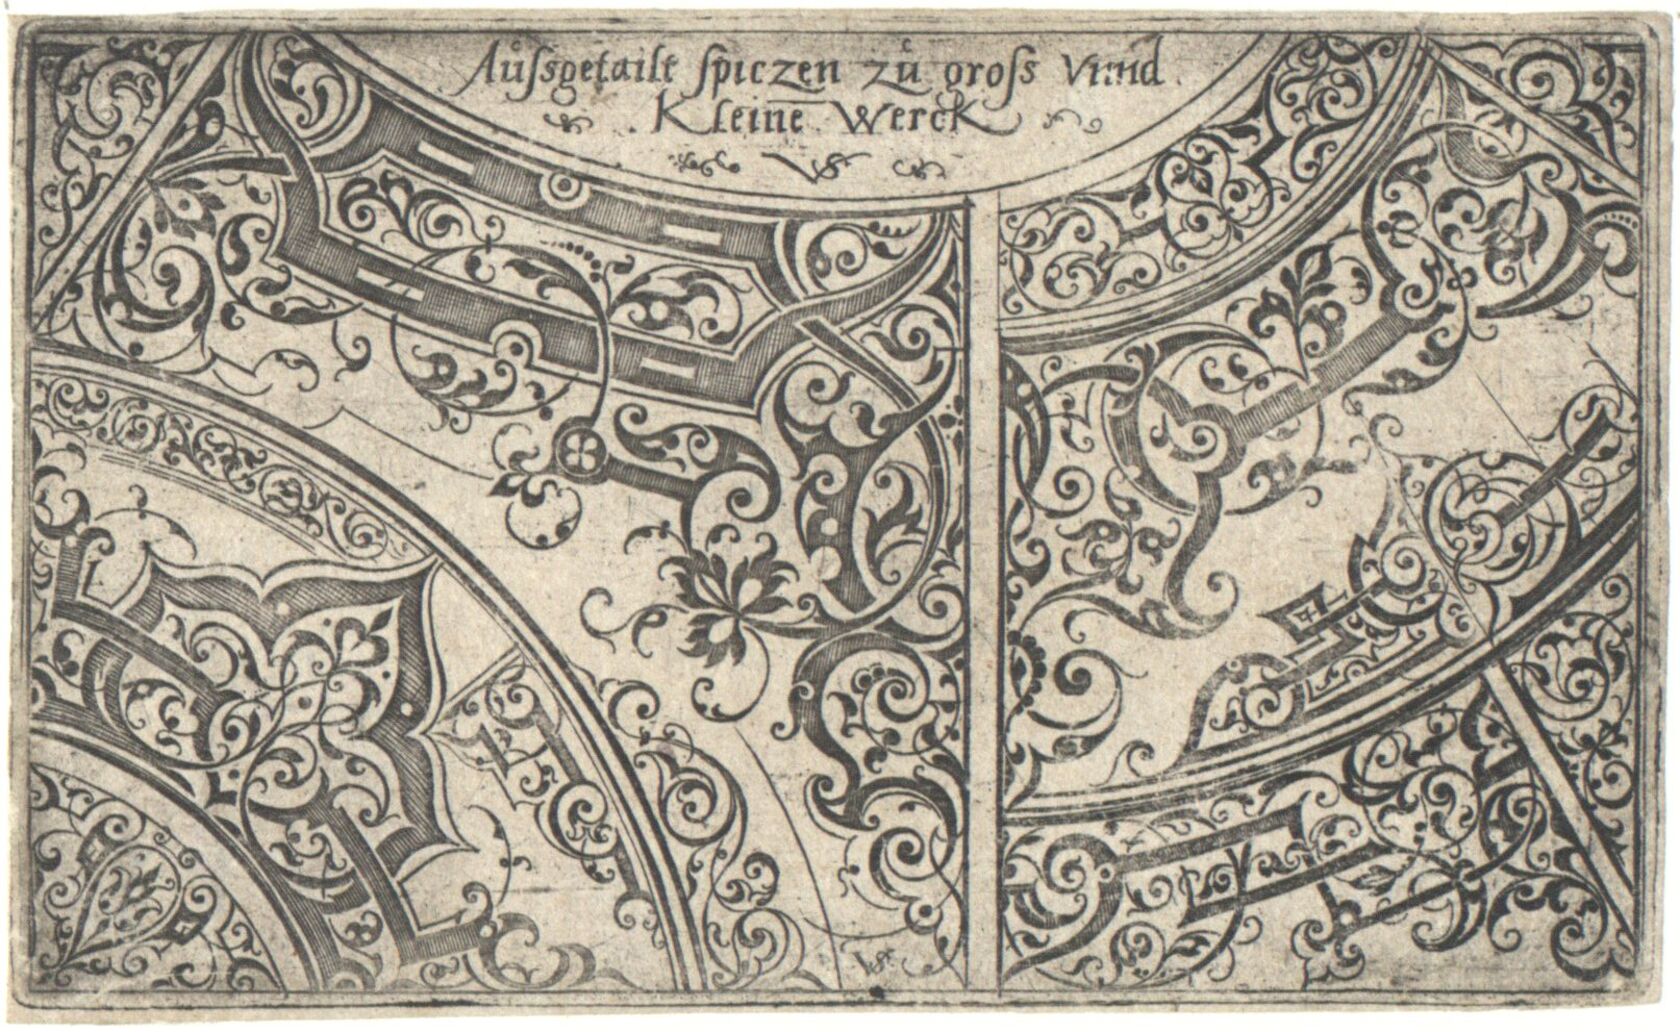 Aůfsgetailt spiczen zů gross vnnd
Kleine Werck
VS
VS